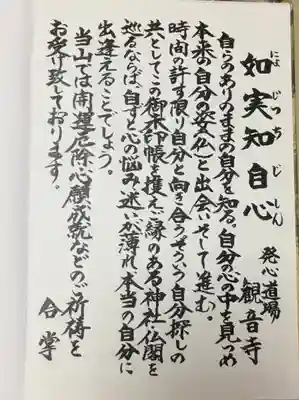 如実知自心
にょじっちじしん
発心道場
観音寺
自らのありのままの自分を知る。自分の心の中を見つめ
本来の自分の姿(仏)と出会いそして進む。
時間の許す限り自分と向き合うぞという自分探しの
共としてこの御朱印帳を携えご縁のある神社・仏閣を
巡るならば、自ずと心の悩み迷いが薄れ、本当の自分に
出逢えることでしょう。
当山では開運厄除、心願成就などのご祈祷を
お受け致しております。
合掌